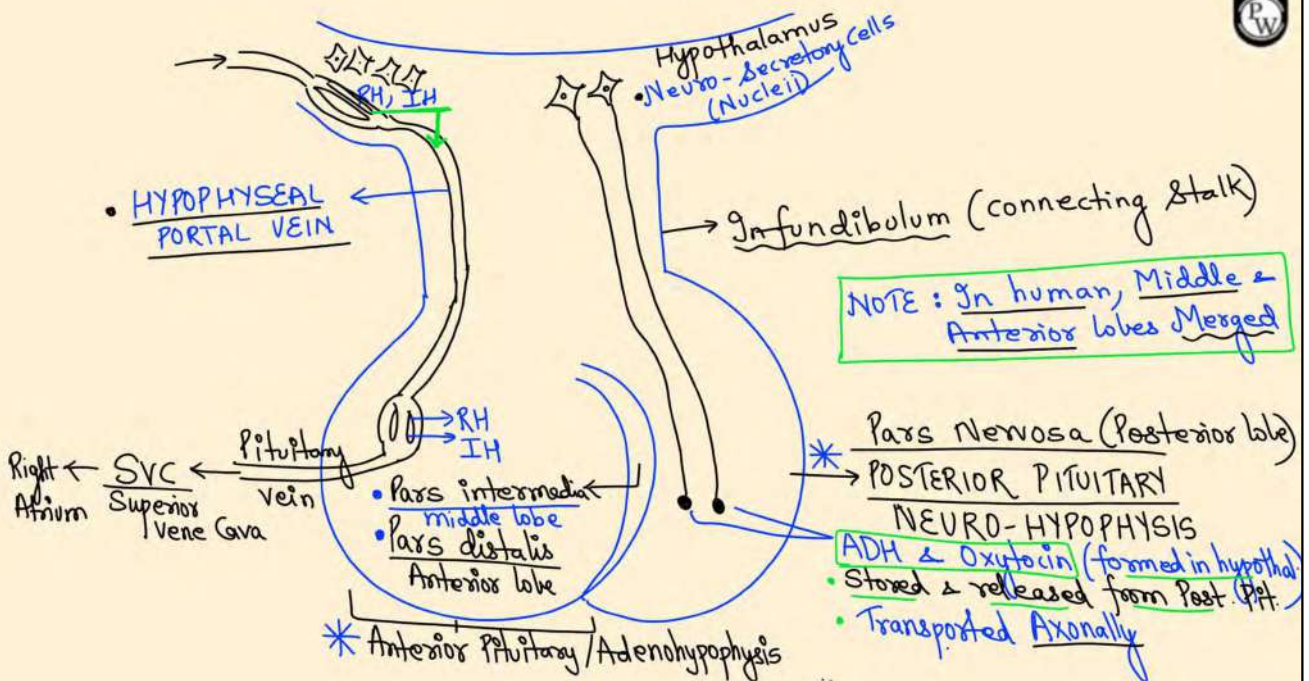 PW
Hypothalamus
• Neuro-Secretory Cells
(Nucleii)
RH, IH
• HYPOPHYSEAL
PORTAL VEIN
→ Infundibulum (connecting stalk)
NOTE : In human, Middle &
Anterior lobes Merged
→ RH
→ IH
Right Atrium ← SVC ← Pituitary vein
Superior
Vene Cava
• Pars intermedia
middle lobe
• Pars distalis
Anterior lobe
* Anterior Pituitary/Adenohypophysis
* Pars Nervosa (Posterior lobe)
→ POSTERIOR PITUITARY
NEURO-HYPOPHYSIS
ADH & Oxytocin (formed in hypothal.)
• Stored & released from Post. Pit.
• Transported Axonally